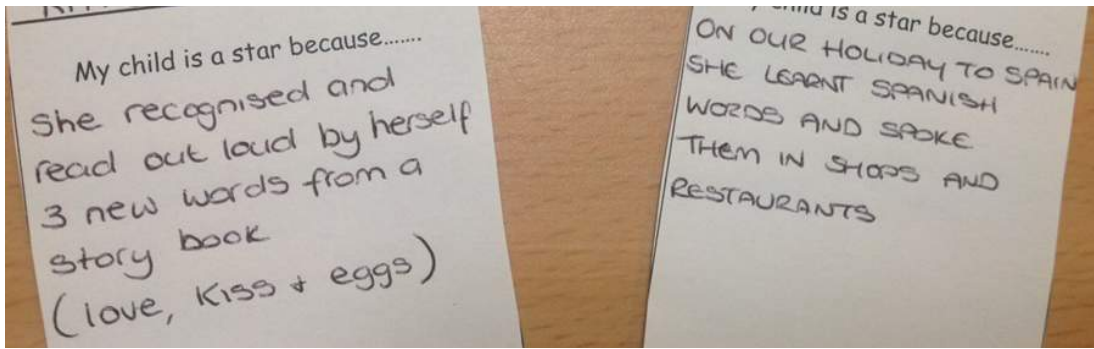 My child is a star because.......
She recognised and
read out loud by herself
3 new words from a
story book
(love, kiss + eggs)
is a star because.......
ON OUR HOLIDAY TO SPAIN
SHE LEARNT SPANISH
WORDS AND SPOKE
THEM IN SHOPS AND
RESTAURANTS